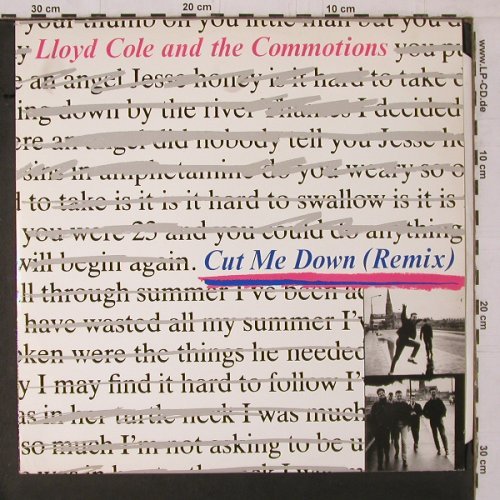 30 cm 20 cm 10 cm
your thumb on you little man but you d
Lloyd Cole and the Commotions you pu
e an angel Jesse honey is it hard to take d
ing down by the river Thames I decided
ere an angel did nobody tell you Jesse ho
sins in amphetamine do you weary so o
l to take is it is it hard to swallow is it is
you were 25 and you could do anything
will begin again. Cut Me Down (Remix)
ll through summer I've been ac
have wasted all my summer I'
ken were the things he needed
y I may find it hard to follow I'
as in her turtle neck I was much
so much I'm not asking to be u
www.LP-CD.de
10 cm
20 cm
30 cm